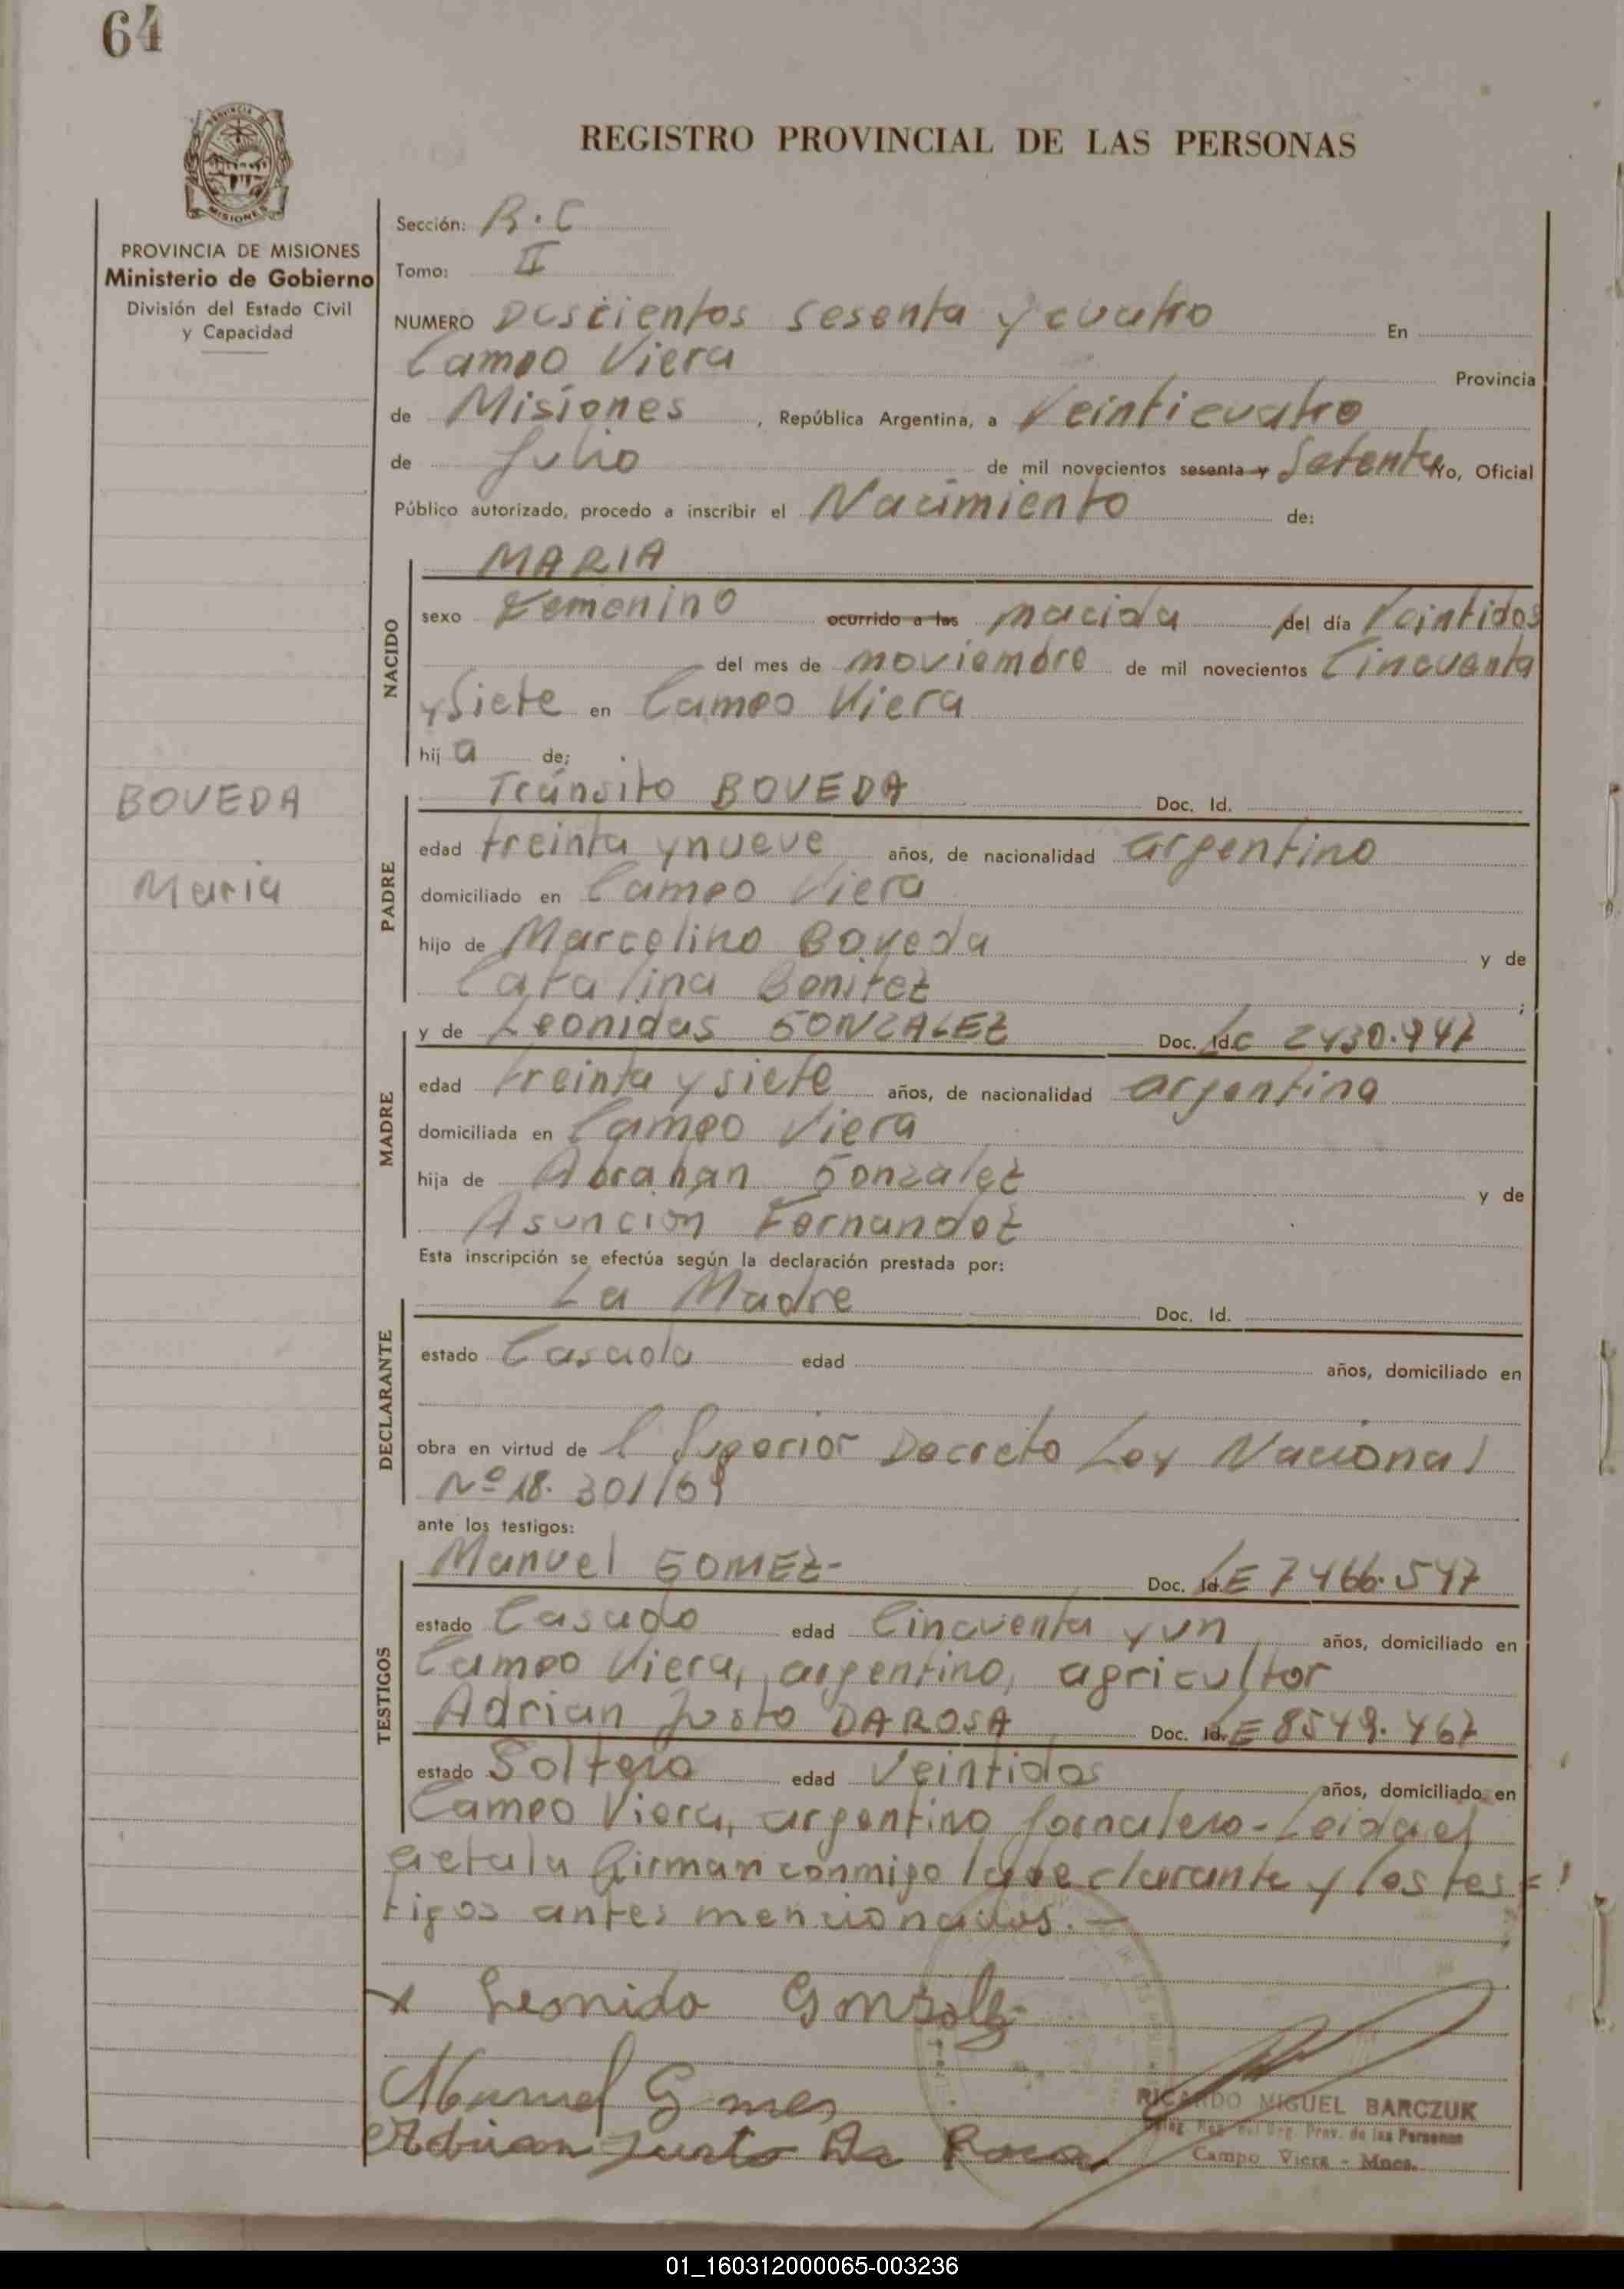 64
REGISTRO PROVINCIAL DE LAS PERSONAS
MISIONES
PROVINCIA DE MISIONES
Ministerio de Gobierno
División del Estado Civil
y Capacidad
BOVEDA
Maria
Sección: R.C
Tomo: II
NUMERO Doscientos sesenta y cuatro En
Campo Viera Provincia
de Misiones, República Argentina, a Veinticuatro
de Julio de mil novecientos sesenta y Setenta Yo, Oficial
Público autorizado, procedo a inscribir el Nacimiento de:
NACIDO
MARIA
sexo Femenino ocurrido a las nacida del día Veintidos
del mes de noviembre de mil novecientos Cincuenta
y Siete en Campo Viera
hij a de;
PADRE
Tránsito BOVEDA Doc. Id.
edad treinta y nueve años, de nacionalidad argentino
domiciliado en Campo Viera
hijo de Marcelino Boveda y de
Catalina Benitez ;
MADRE
y de Leonidas GONZALEZ Doc. Id. LC 2430.947
edad treinta y siete años, de nacionalidad argentina
domiciliada en Campo Viera
hija de Abrahan Gonzalez y de
Asuncion Fernandez
Esta inscripción se efectúa según la declaración prestada por:
DECLARANTE
La Madre Doc. Id.
estado Casada edad años, domiciliado en
obra en virtud de l Superior Decreto Ley Nacional
Nº 18.301/69
ante los testigos:
TESTIGOS
Manuel GOMEZ- Doc. Id. LE 7466.547
estado Casado edad Cincuenta y un años, domiciliado en
Campo Viera, argentino, agricultor
Adrian Justo DAROSA Doc. Id. LE 8549.467
estado Soltero edad Veintidos años, domiciliado en
Campo Viera, argentino Jornalero - Leida el
acta la firman conmigo la declarante y los tes=
tigos antes mencionados.-
x Leonida Gonzalez
Manuel Gomes
Adrian Justo Da Rosa
RICARDO MIGUEL BARCZUK
Prov. de las Personas
Campo Viera - Mnes.
01_160312000065-003236